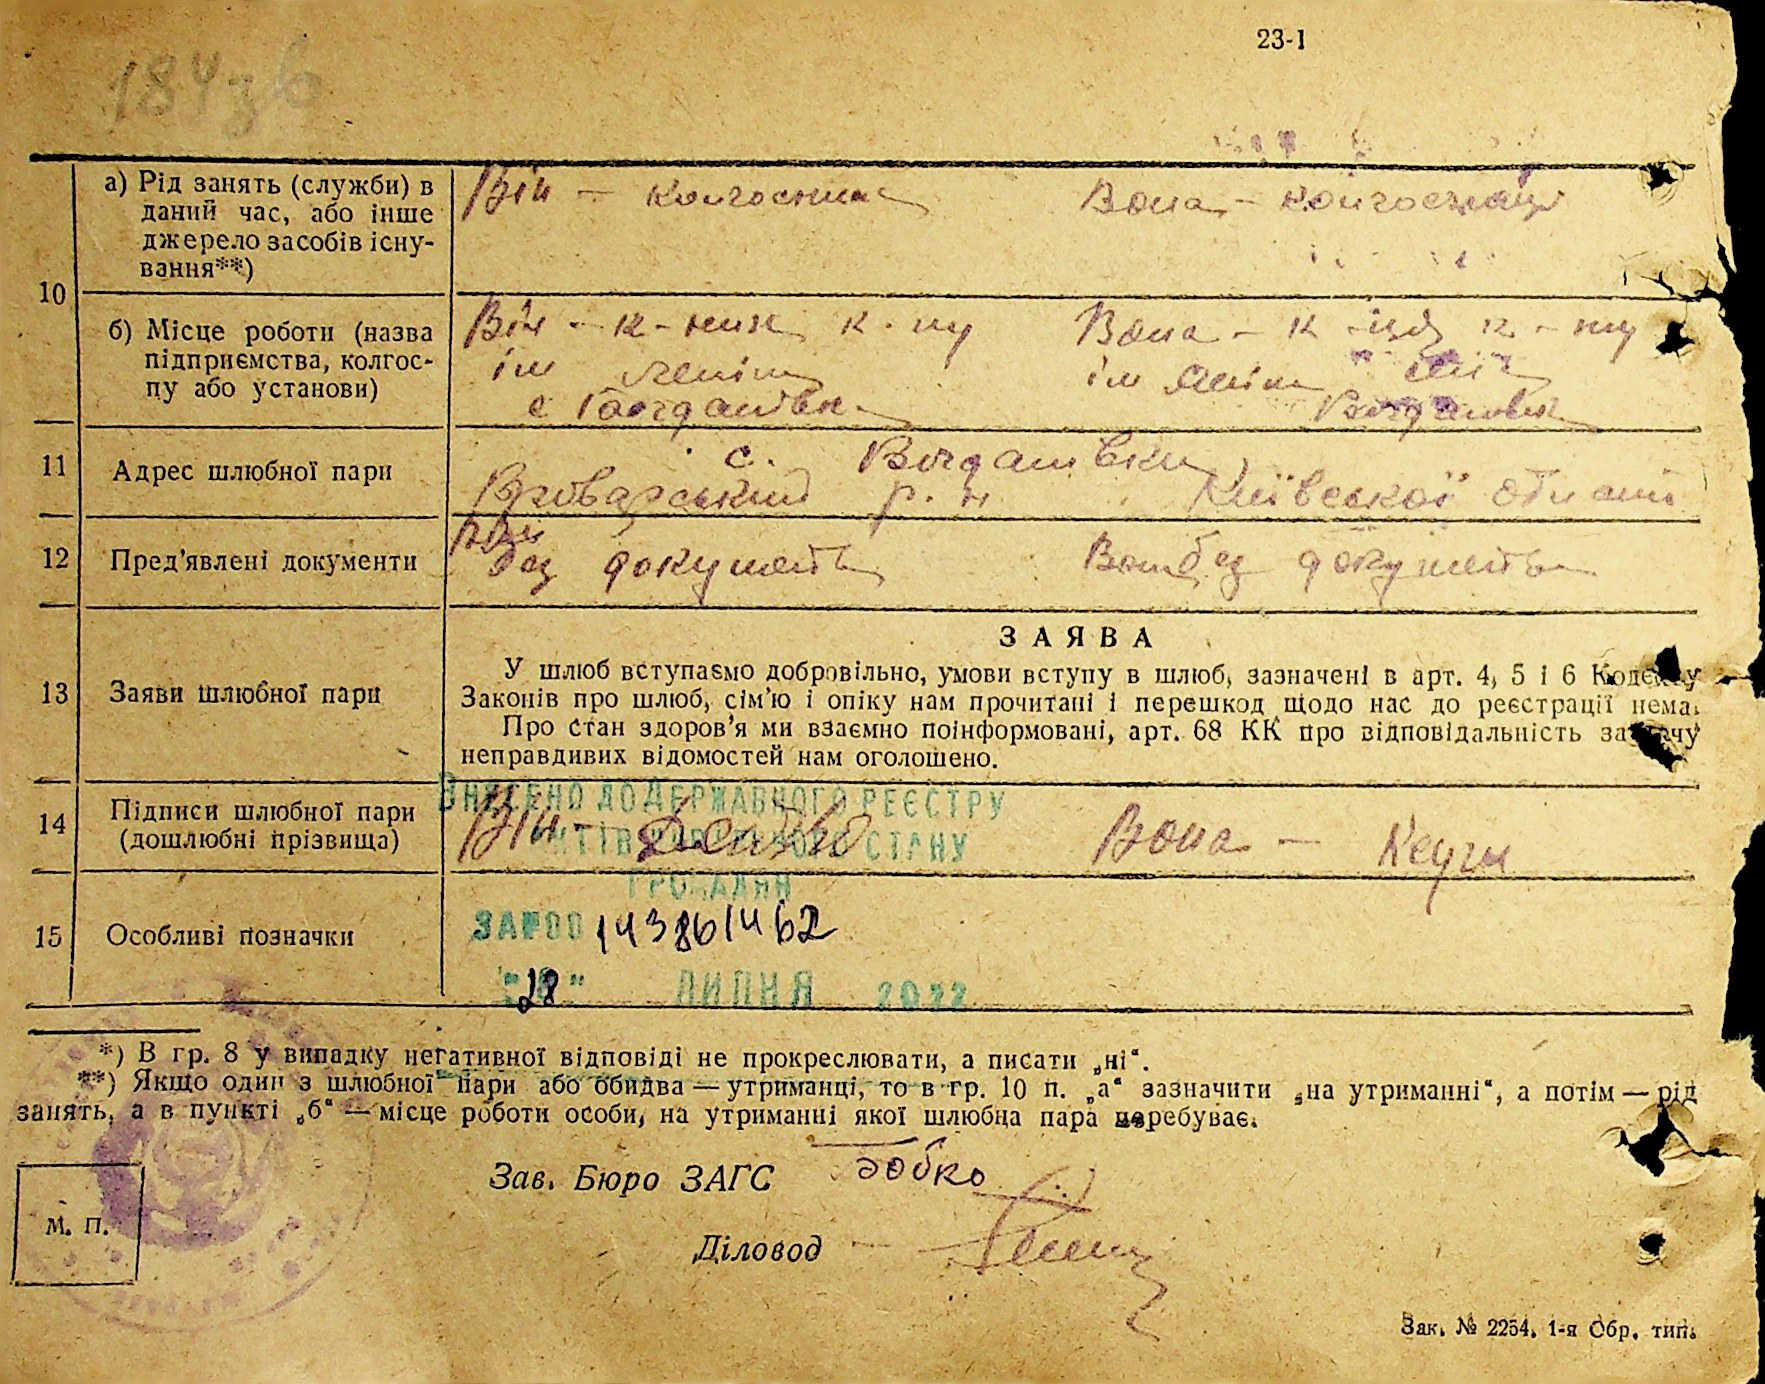 23-1
184зв
10
а) Рід занять (служби) в
даний час, або інше
джерело засобів існу-
вання**)
Він - колгоспник
Вона - колгоспниця
б) Місце роботи (назва
підприємства, колгос-
пу або установи)
Він - к-ник к-пу
ім Леніна
с Богданівка
Вона - к-ця к-пу
ім Леніна
Богданівка
11
Адрес шлюбної пари
с. Богданівка
Броварський р-н Київської області
12
Пред'явлені документи
Він
без документів
Вона без документів
13
Заяви шлюбної пари
ЗАЯВА
У шлюб вступаємо добровільно, умови вступу в шлюб, зазначені в арт. 4, 5 і 6 Кодексу
Законів про шлюб, сім'ю і опіку нам прочитані і перешкод щодо нас до реєстрації нема.
Про стан здоров'я ми взаємно поінформовані, арт. 68 КК про відповідальність за дачу
неправдивих відомостей нам оголошено.
14
Підписи шлюбної пари
(дошлюбні прізвища)
Він -
Вона -
ВНЕСЕНО ДО ДЕРЖАВНОГО РЕЄСТРУ
АКТІВ ЦИВІЛЬНОГО СТАНУ
ГРОМАДЯН
15
Особливі позначки
ЗА №00143861462
"28" ЛИПНЯ 2022
*) В гр. 8 у випадку негативної відповіді не прокреслювати, а писати „ні“.
**) Якщо один з шлюбної пари або обидва — утриманці, то в гр. 10 п. „а“ зазначити „на утриманні“, а потім — рід
занять, а в пункті „б“ — місце роботи особи, на утриманні якої шлюбна пара перебуває.
Зав. Бюро ЗАГС Бобко
Діловод -
М. П.
Зак. № 2254. 1-я Обр. тип.